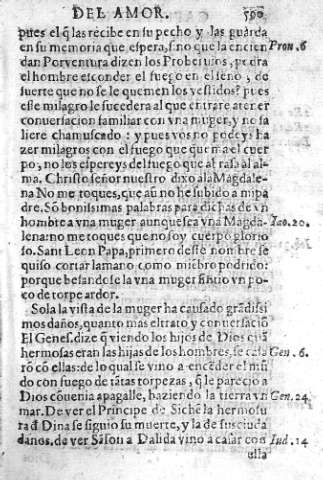 DEL AMOR. 590
pues el q̃ las recibe en su pecho y las guarda
en su memoria que espera, sino que la encien
dan Porventura dizen los Proberuios, podra Prou. 6
el hombre esconder el fuego en el seno, de
suerte que no se le quemen los vestidos? pues
este milagro le sucedera al que entrare a tener
conuersacion familiar con vna muger, y no sa
liere chamuscado: y pues vos no podeys ha
zer milagros con el fuego que quema el cuer
po, no los espereys del fuego que abrasa al al-
ma. Christo señor nuestro dixo a la Magdale
na No me toques, que aũ no he subido a mi pa
dre. Sõ bonissimas palabras para dichas de vn
hombre a vna muger aunque sea vna Magda- Ioã. 20.
lena: no me toques que no soy cuerpo glorio
so. Sant Leon Papa, primero deste nombre se
quiso cortar la mano como miẽbro podrido:
porque besandose la vna muger sintio vn po-
co de torpe ardor.
Sola la vista de la muger ha causado grãdissi
mos daños, quanto mas el trato y conuersaciõ
El Genes. dize q̃ viendo los hijos de Dios cuã
hermosas eran las hijas de los hombres, se casa Gen. 6.
rõ cõ ellas: de lo qual se vino a encẽder el mũ
do con fuego de tãtas torpezas, q̃ le parecio a
Dios cõuenia apagalle, haziendo la tierra vn Gen. 24
mar. De ver el Principe de Sichẽ la hermosu
ra d̃ Dina se siguio su muerte, y la de su ciuda
danos. de ver Sãson a Dalida vino a casar con Iud. 14
ella